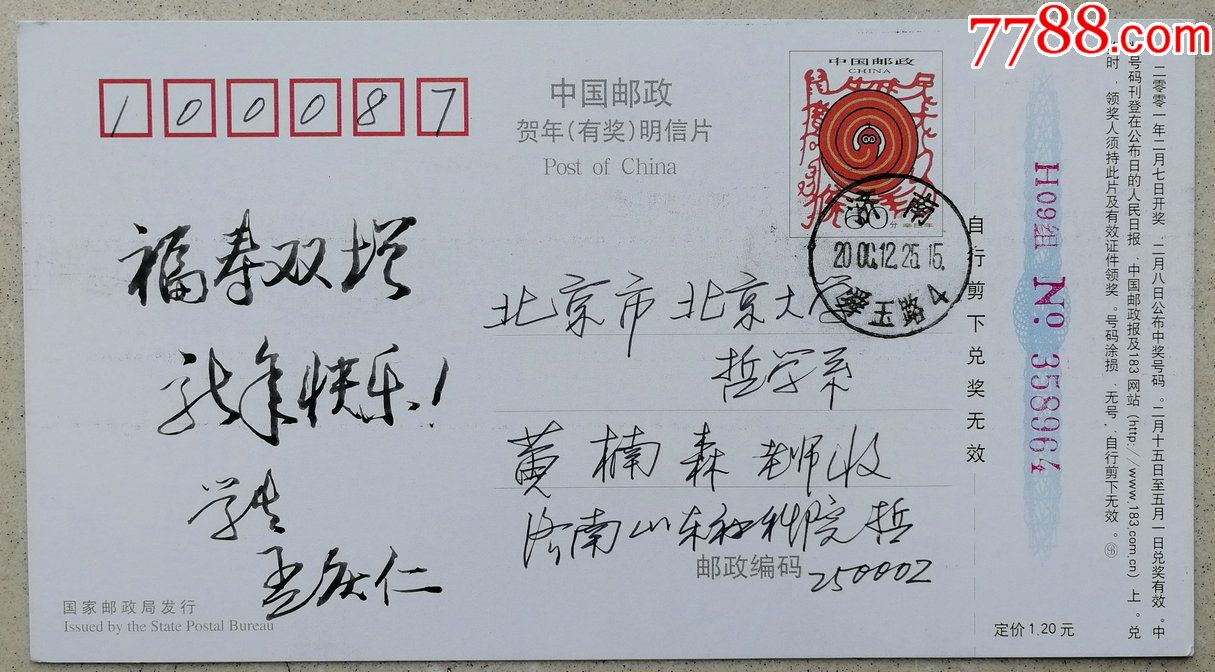 7788.com
100087
中国邮政
贺年(有奖)明信片
Post of China
中国邮政
CHINA
60分
济南
2000.12.25.15.
玉路4
福寿双增
新年快乐!
学生
孟庆仁
北京市 北京大学
哲学系
黄楠森老师收
济南山东社科院哲
邮政编码
250002
国家邮政局发行
Issued by the State Postal Bureau
自行剪下兑奖无效
H09组 No. 358964
二零零一年二月七日开奖,二月八日公布中奖号码。二月十五日至五月一日兑奖有效。中
号码刊登在公布日的人民日报、中国邮政报及183网站(http://www.183.com.cn)上。兑
时,领奖人须持此片及有效证件领奖。号码涂损、无号,自行剪下无效。
定价1.20元